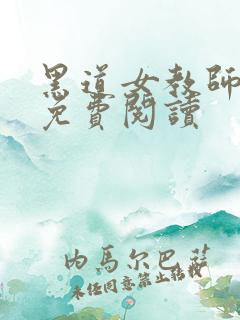 黑道女教師
免費閱讀
內馬尔巴薩
未经同意禁止转载